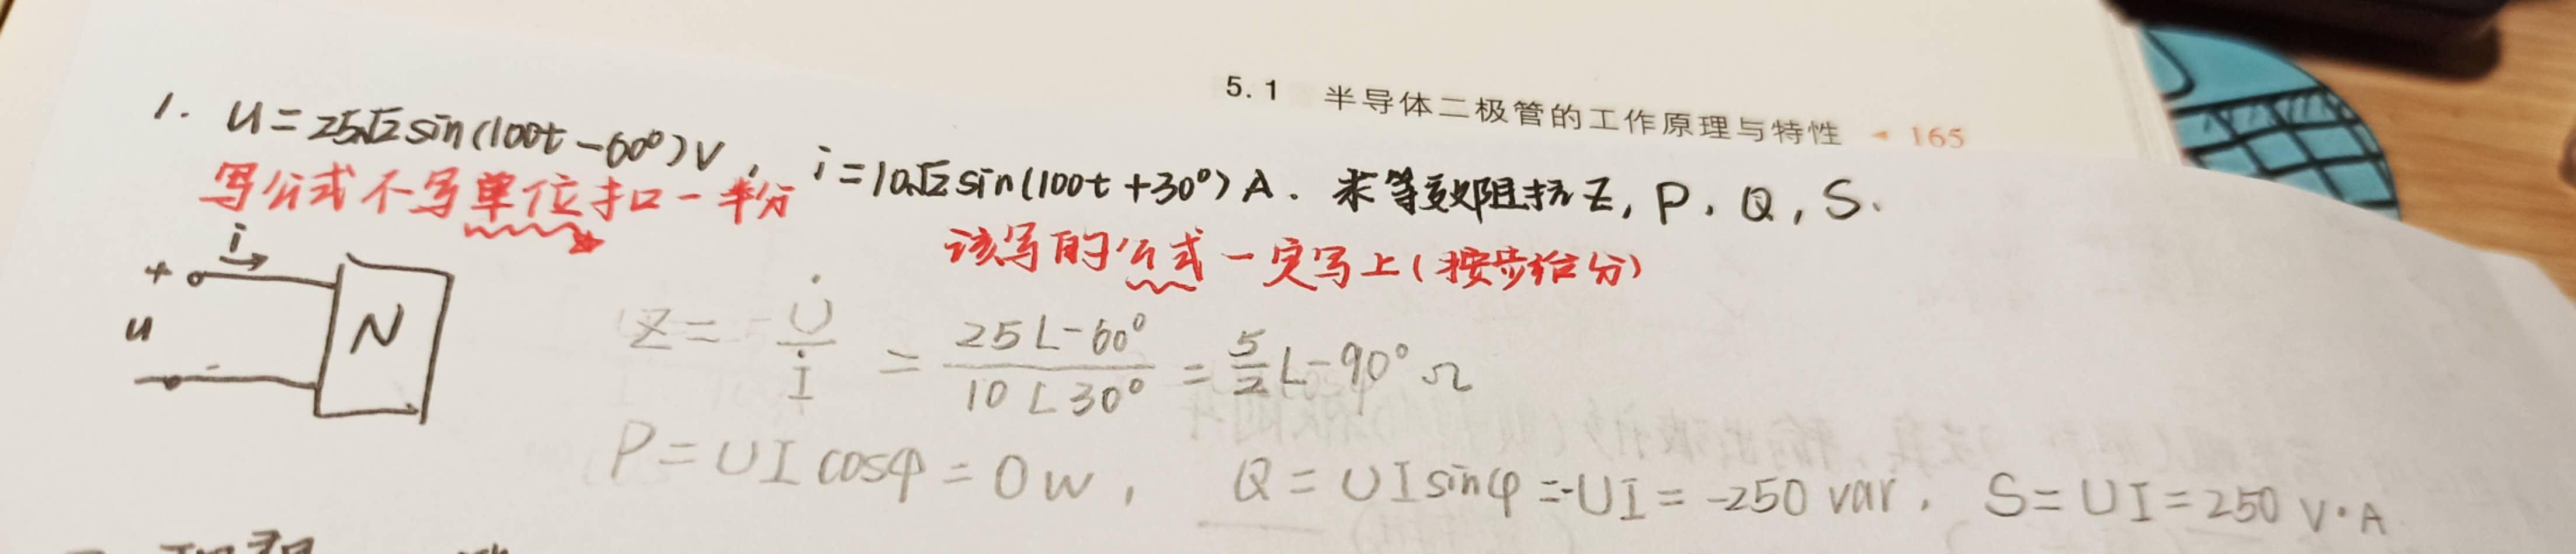 5.1 半导体二极管的工作原理与特性 165
1. u=25√2sin(100t-60°)V, i=10√2sin(100t+30°)A. 求等效阻抗Z, P, Q, S.
写公式不写单位扣一半分
该写的公式一定写上(按步给分)
i
+
u
-
N
Z = U̇/İ = 25∠-60°/10∠30° = 5/2∠-90° Ω
P=UIcosφ=0w, Q=UIsinφ=-UI=-250 var, S=UI=250 V·A